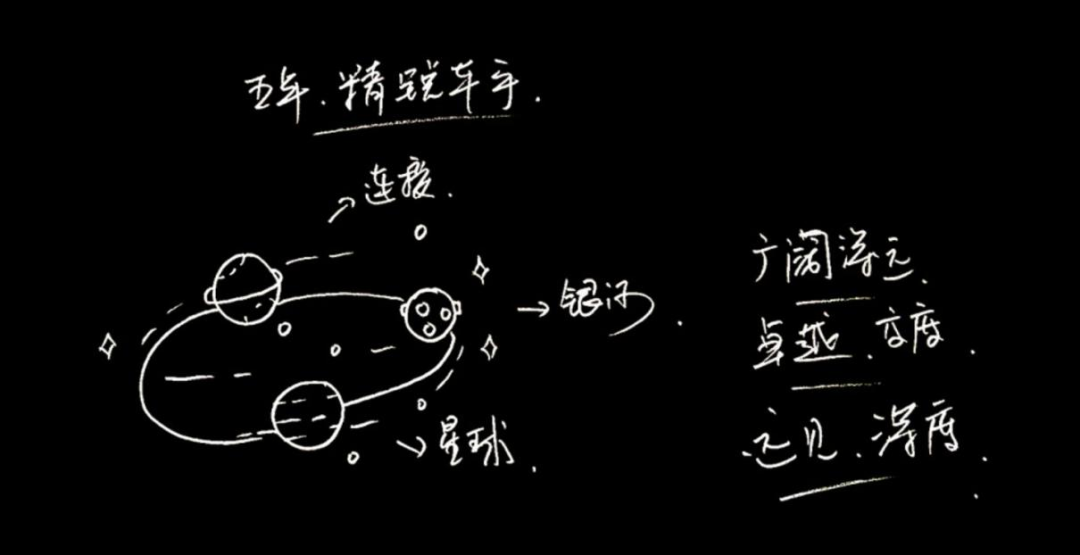 五年.精锐车手.
连接.
银河.
星球.
广阔深远.
卓越.高度.
远见.深度.